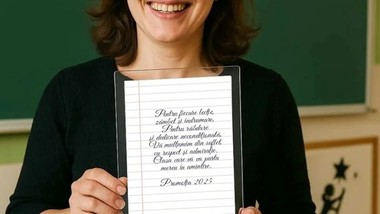 Pentru fiecare lecție,
zâmbet și îndrumare,
Pentru răbdare
și dedicare necondiționată,
Vă mulțumim din suflet,
cu respect și admirație,
Clasa care vă va purta
mereu în amintire.
Promoția 2025